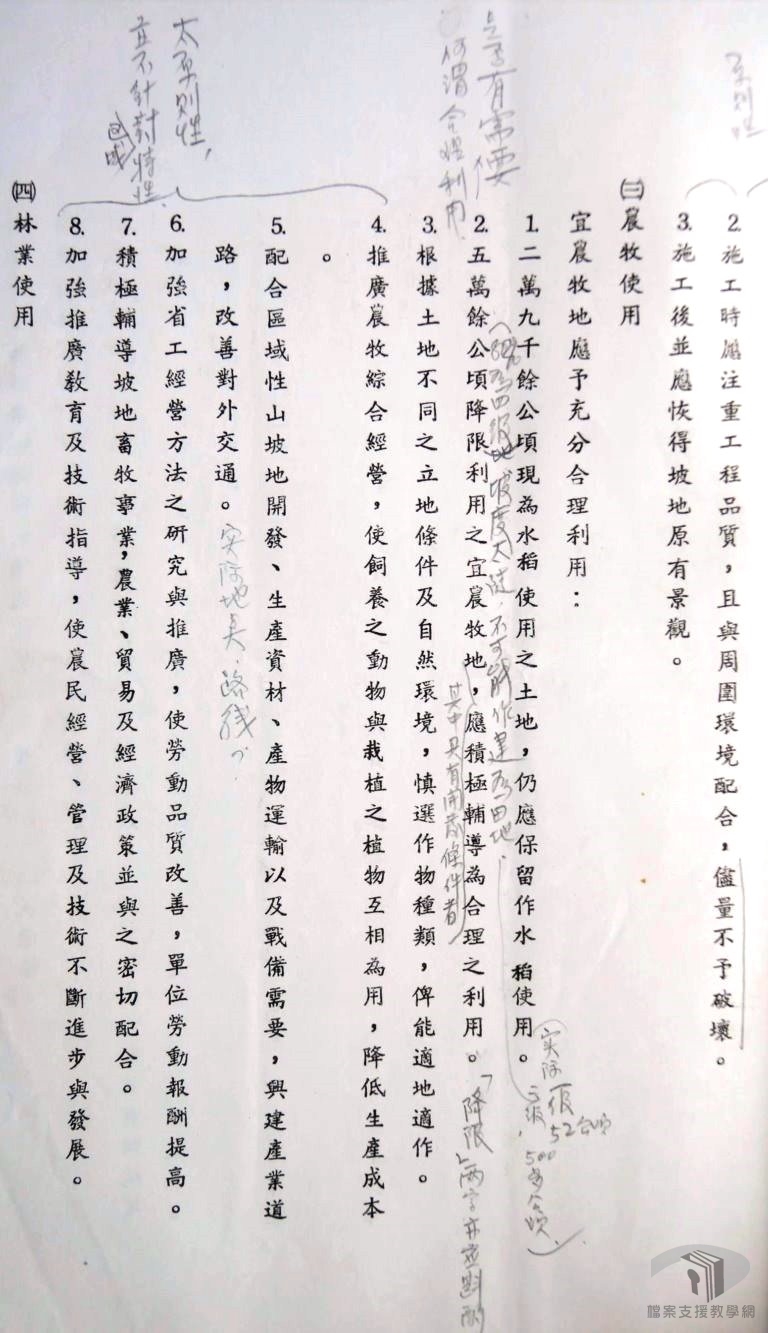 2.施工時應注重工程品質，且與周圍環境配合，儘量不予破壞。
3.施工後並應恢得坡地原有景觀。
㈢農牧使用
宜農牧地應予充分合理利用：
1.二萬九千餘公頃現為水稻使用之土地，仍應保留作水稻使用。
2.五萬餘公頃降限利用之宜農牧地，應積極輔導為合理之利用。
3.根據土地不同之立地條件及自然環境，慎選作物種類，俾能適地適作。
4.推廣農牧綜合經營，使飼養之動物與栽植之植物互相為用，降低生產成本
。
5.配合區域性山坡地開發、生產資材、產物運輸以及戰備需要，興建產業道
路，改善對外交通。
6.加強省工經營方法之研究與推廣，使勞動品質改善，單位勞動報酬提高。
7.積極輔導坡地畜牧事業，農業、貿易及經濟政策並與之密切配合。
8.加強推廣敎育及技術指導，使農民經營、管理及技術不斷進步與發展。
㈣林業使用
原則性
是否有需要
何謂合理利用
太原則性，
並不針對特性
區域
坡度太陡，不可能作建為田地.
其中具有開發條件者
实际地点、路线
实际一級52公頃
三級，500多公頃
「降限」兩字亦應斟酌
檔案支援教學網